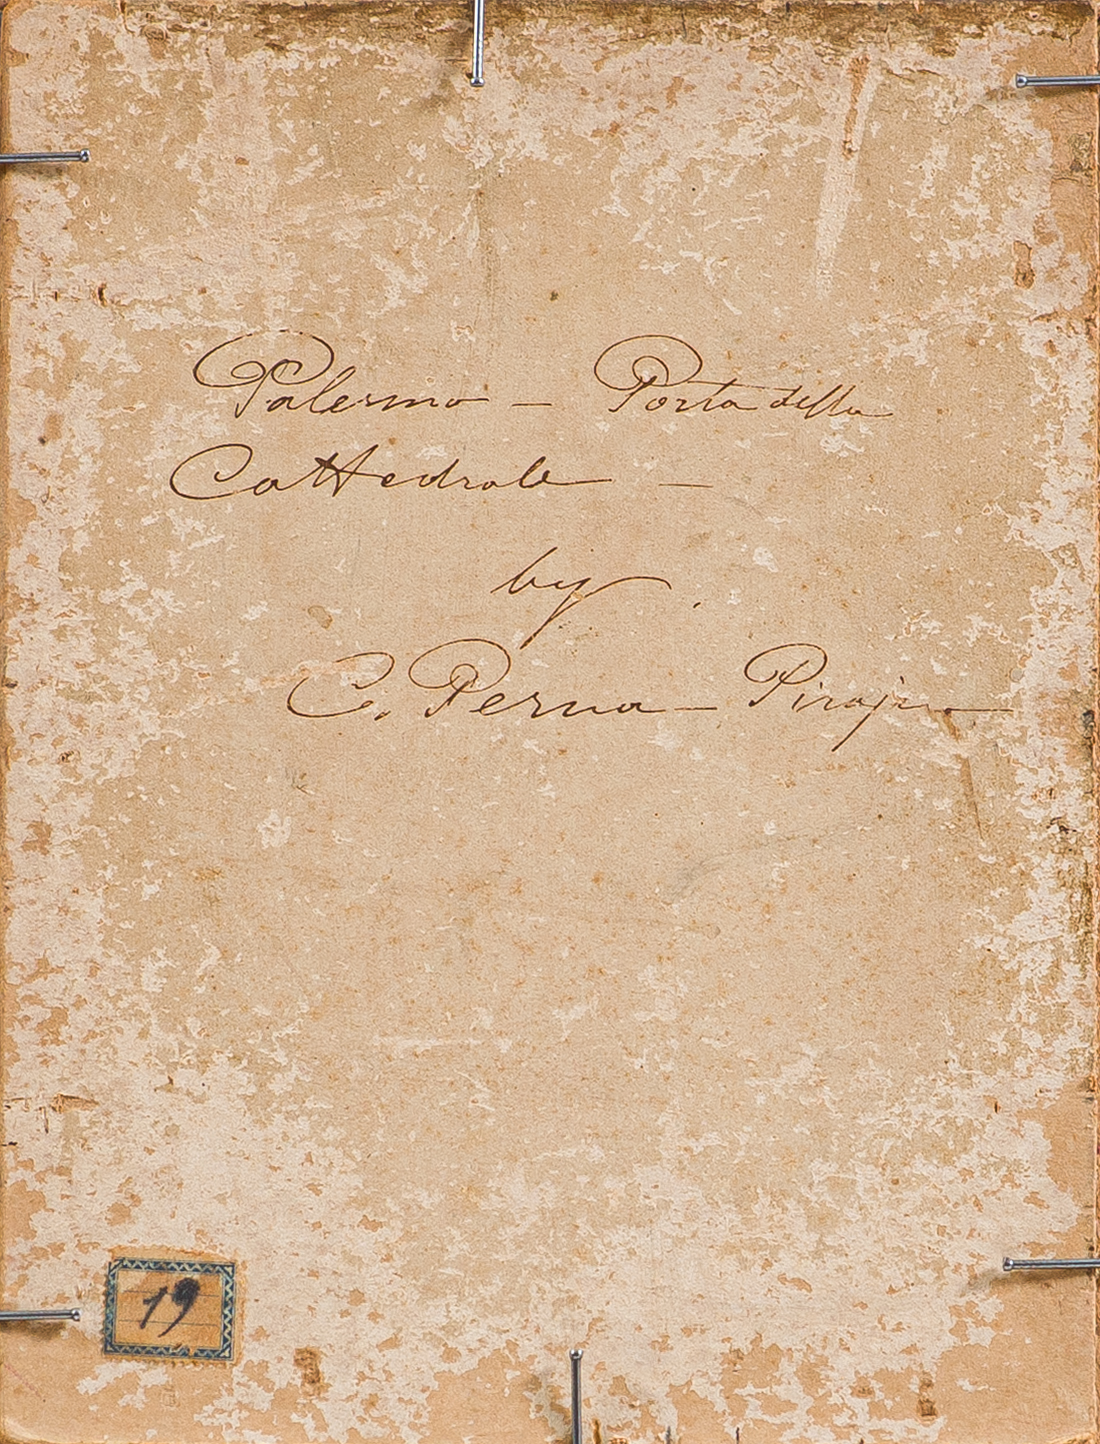 Palermo – Porta della
Cattedrale –
by
C. Perna – Pirajno
19